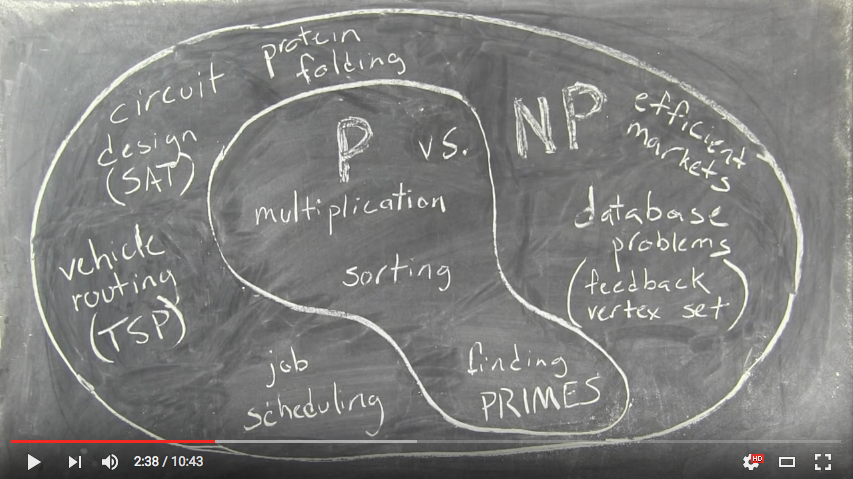 protein
folding
circuit
design
(SAT)
P vs. NP
efficient
markets
multiplication
sorting
database
problems
(feedback
vertex set)
vehicle
routing
(TSP)
job
scheduling
finding
PRIMES
2:38 / 10:43
HD